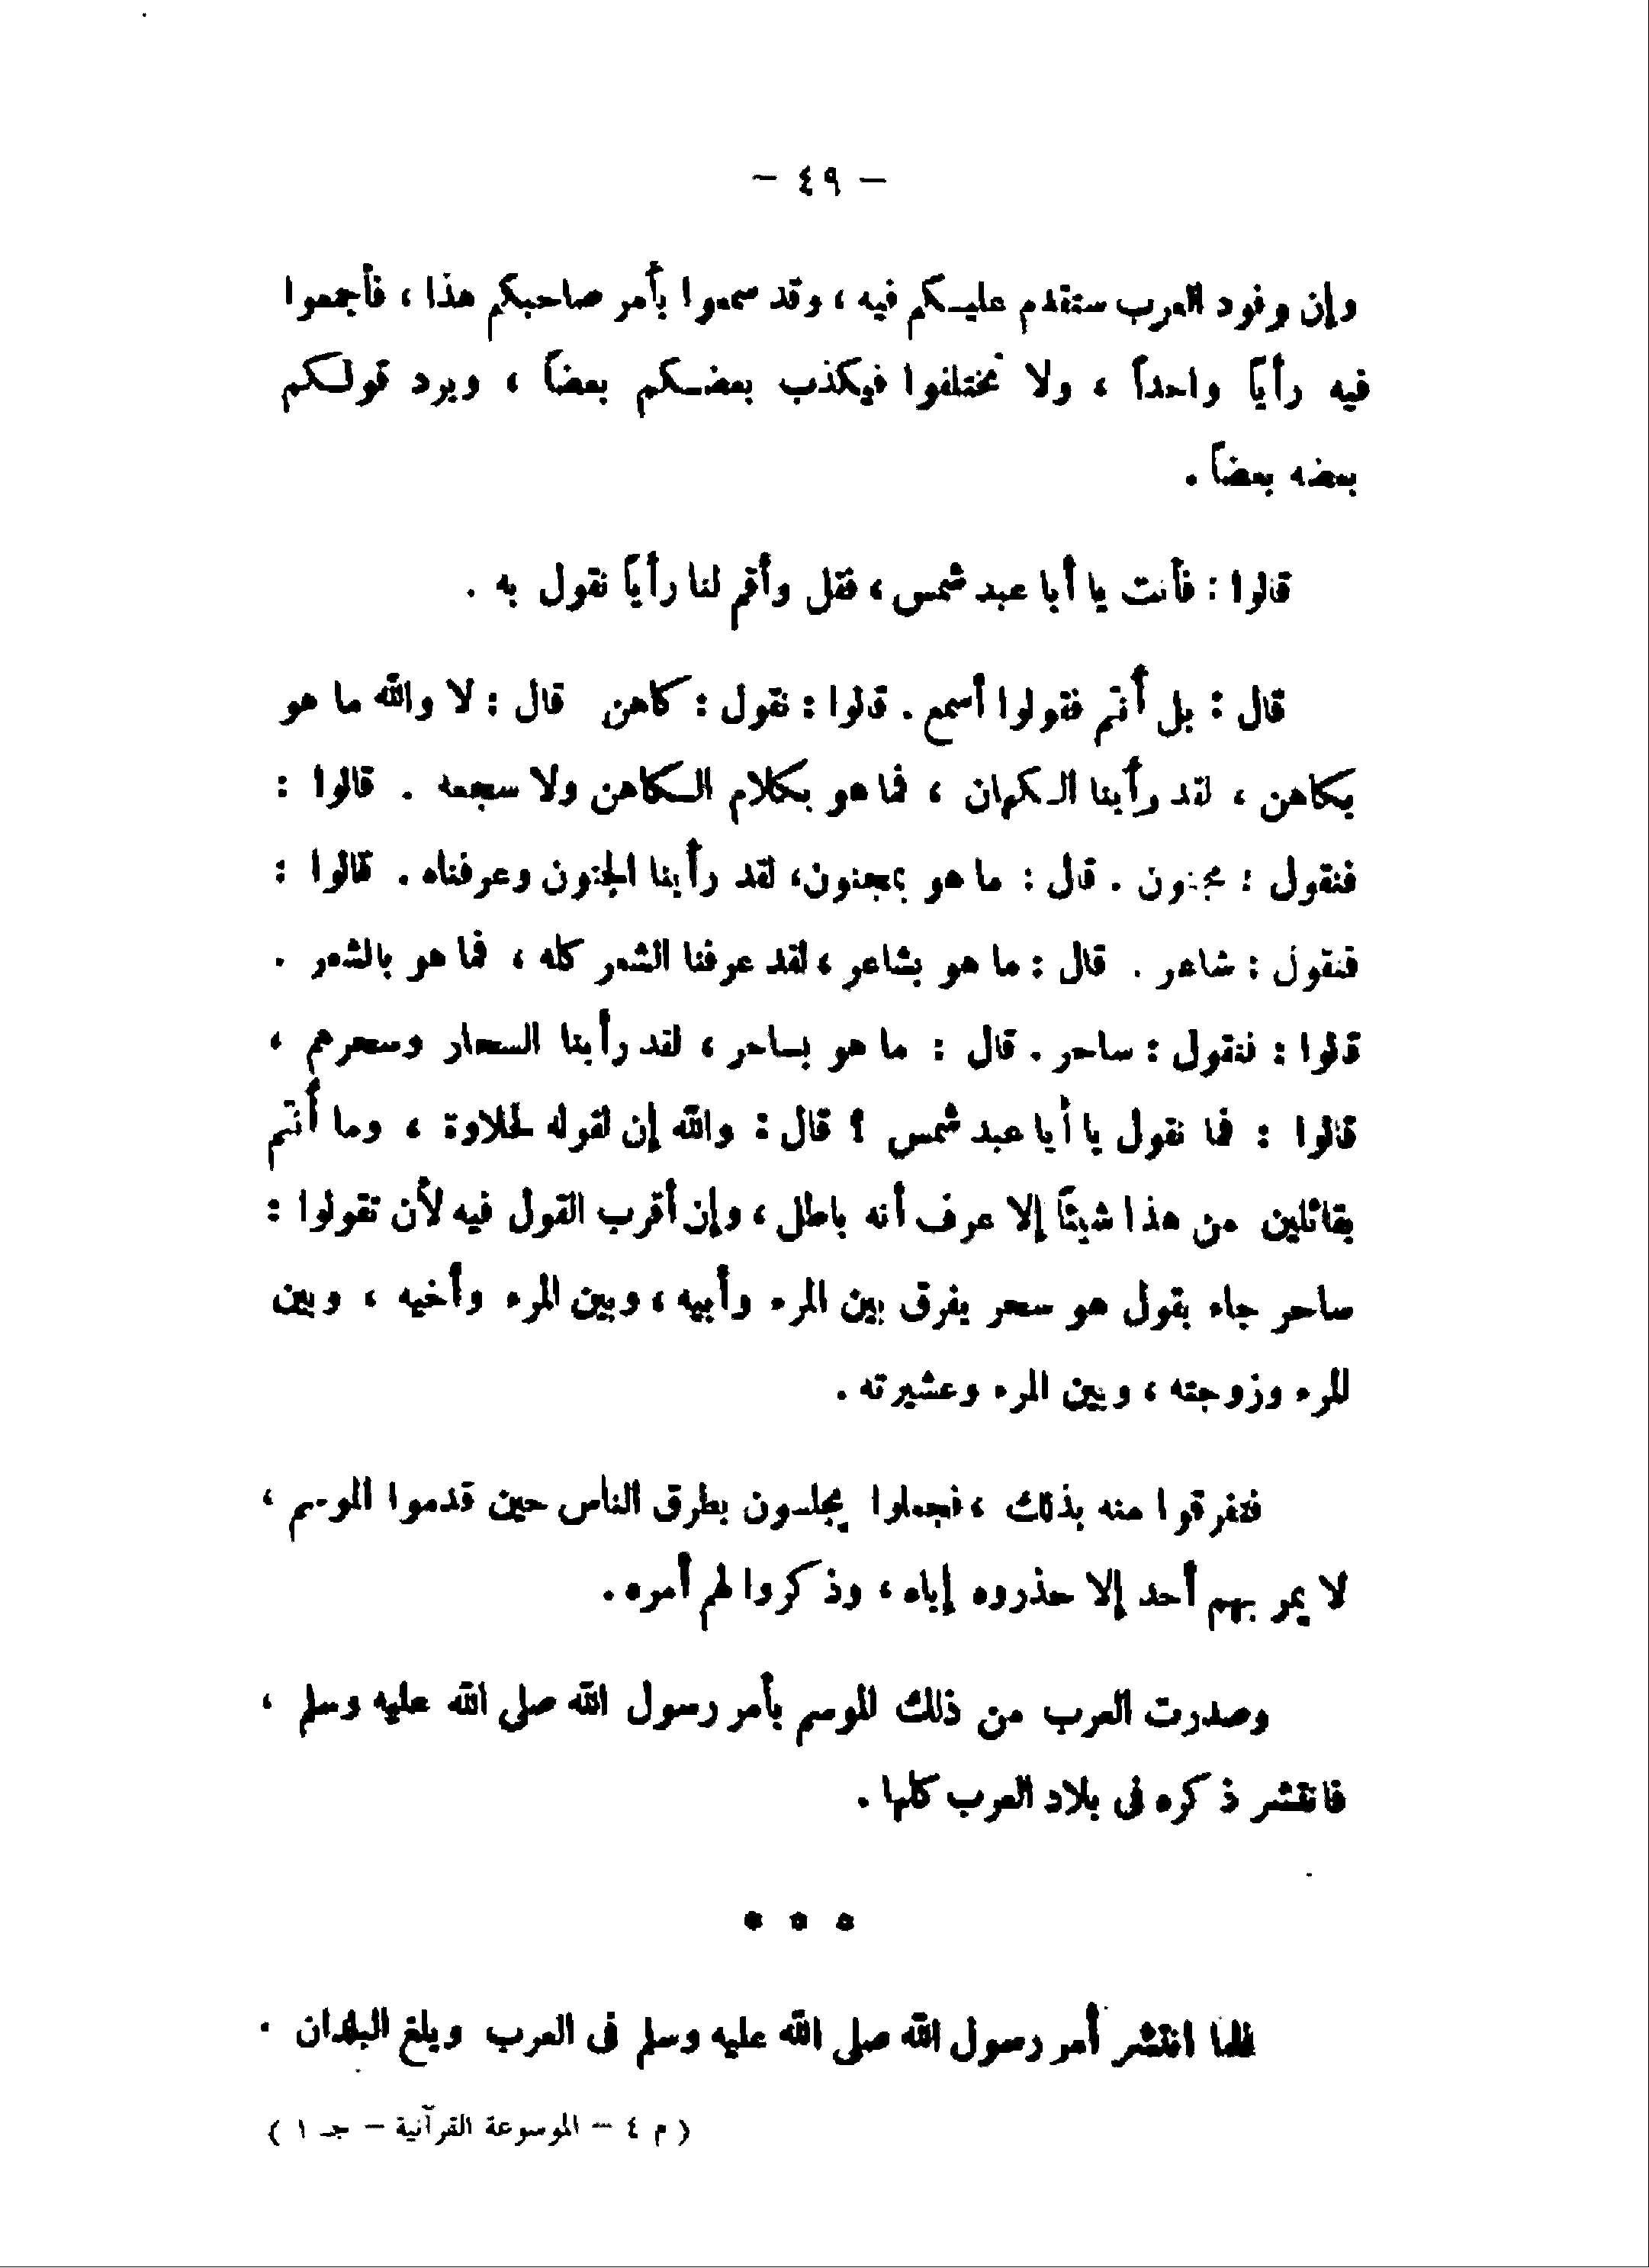 — ٤٩ —
وإن وفود العرب ستقدم عليكم فيه ، وقد سمعوا بأمر صاحبكم هذا ، فأجمعوا
فيه رأيًا واحدًا ، ولا تختلفوا فيكذب بعضكم بعضًا ، ويرد قولكم
بعضه بعضًا .
قالوا : فأنت يا أبا عبد شمس ، فقل وأقم لنا رأيًا نقول به .
قال : بل أنتم فقولوا أسمع . قالوا : نقول : كاهن قال : لا والله ما هو
بكاهن ، لقد رأينا الكهان ، فما هو بكلام الكاهن ولا سجعه . قالوا :
فنقول : مجنون . قال : ما هو بمجنون ، لقد رأينا الجنون وعرفناه . قالوا :
فنقول : شاعر . قال : ما هو بشاعر ، لقد عرفنا الشعر كله ، فما هو بالشعر .
قالوا : فنقول : ساحر . قال : ما هو بساحر ، لقد رأينا السحار وسحرهم ،
قالوا : فما نقول يا أبا عبد شمس ؟ قال : والله إن لقوله لحلاوة ، وما أنتم
بقائلين من هذا شيئًا إلا عرف أنه باطل ، وإن أقرب القول فيه لأن تقولوا :
ساحر جاء بقول هو سحر يفرق بين المرء وأبيه ، وبين المرء وأخيه ، وبين
المرء وزوجته ، وبين المرء وعشيرته .
فتفرقوا منه بذلك ، فجعلوا يجلسون بطرق الناس حين قدموا الموسم ،
لا يمر بهم أحد إلا حذروه إياه ، وذكروا لهم أمره .
وصدرت العرب من ذلك الموسم بأمر رسول الله صلى الله عليه وسلم ،
فانتشر ذكره فى بلاد العرب كلها .
* * *
فلما انتشر أمر رسول الله صلى الله عليه وسلم فى العرب وبلغ البلدان .
( م ٤ — الموسوعة القرآنية — جـ ١ )